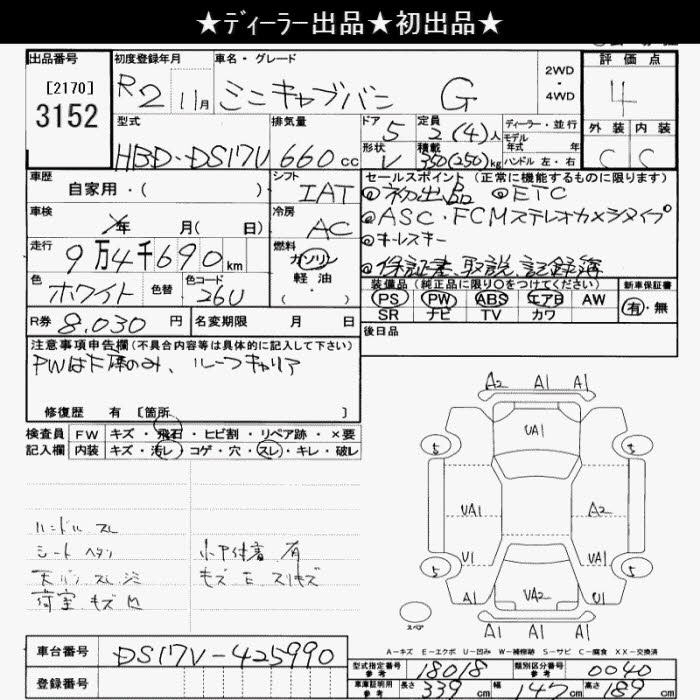 ★ディーラー出品★初出品★
出品番号
[2170]
3152
初度登録年月
R2 11月
車名・グレード
ミニキャブバン G
2WD
・
4WD
評価点
4
外装 内装
C C
型式
HBD-DS17V
排気量
660cc
ドア 5
形状 V
定員 2(4)人
積載 350(250)kg
ディーラー・並行
モデル
年式 年
ハンドル 左・右
車歴
自家用・( )
シフト
IAT
車検
年 月( 日)
冷房
AC
走行
9万4千690km
燃料
ガソリン
軽油
・( )
色
ホワイト
色替
色コード
26U
セールスポイント(正常に機能するものに限ります)
◎初出品 ◎ETC
◎ASC・FCMステレオカメラタイプ
◎キーレスキー
◎保証書、取説、記録簿
装備品(純正品に限り○をつけてください)
PS PW ABS エアB AW
SR ナビ TV カワ
新車保証書
有・無
R券 8,030円
名変期限 月 日
後日品
注意事項申告欄(不具合内容等は具体的に記入して下さい)
PWはF席のみ、ルーフキャリア
修復歴 有 [箇所 ]
検査員 FW キズ・飛石・ヒビ割・リペア跡・×要
記入欄 内装 キズ・汚レ・コゲ・穴・スレ・キレ・破レ
ハンドル スレ
シート ヘタリ
天バリ スレ シミ
荷室 キズ 凹
小P付着 有
キズ E スリキズ
A2 A1 A1
UA1
5 5
UA1 A2
U1 UA1
5 5
A1 UA2 U1
A1 A1 A1
スペア
A-キズ E-エクボ U-凹み W-補修跡 S-サビ C-腐食 XX-交換済
車台番号 DS17V-425990
登録番号
型式指定番号
参考
18018
類別区分番号
参考
0040
車庫証明用
参考
長さ 339cm 幅 147cm 高さ 189cm